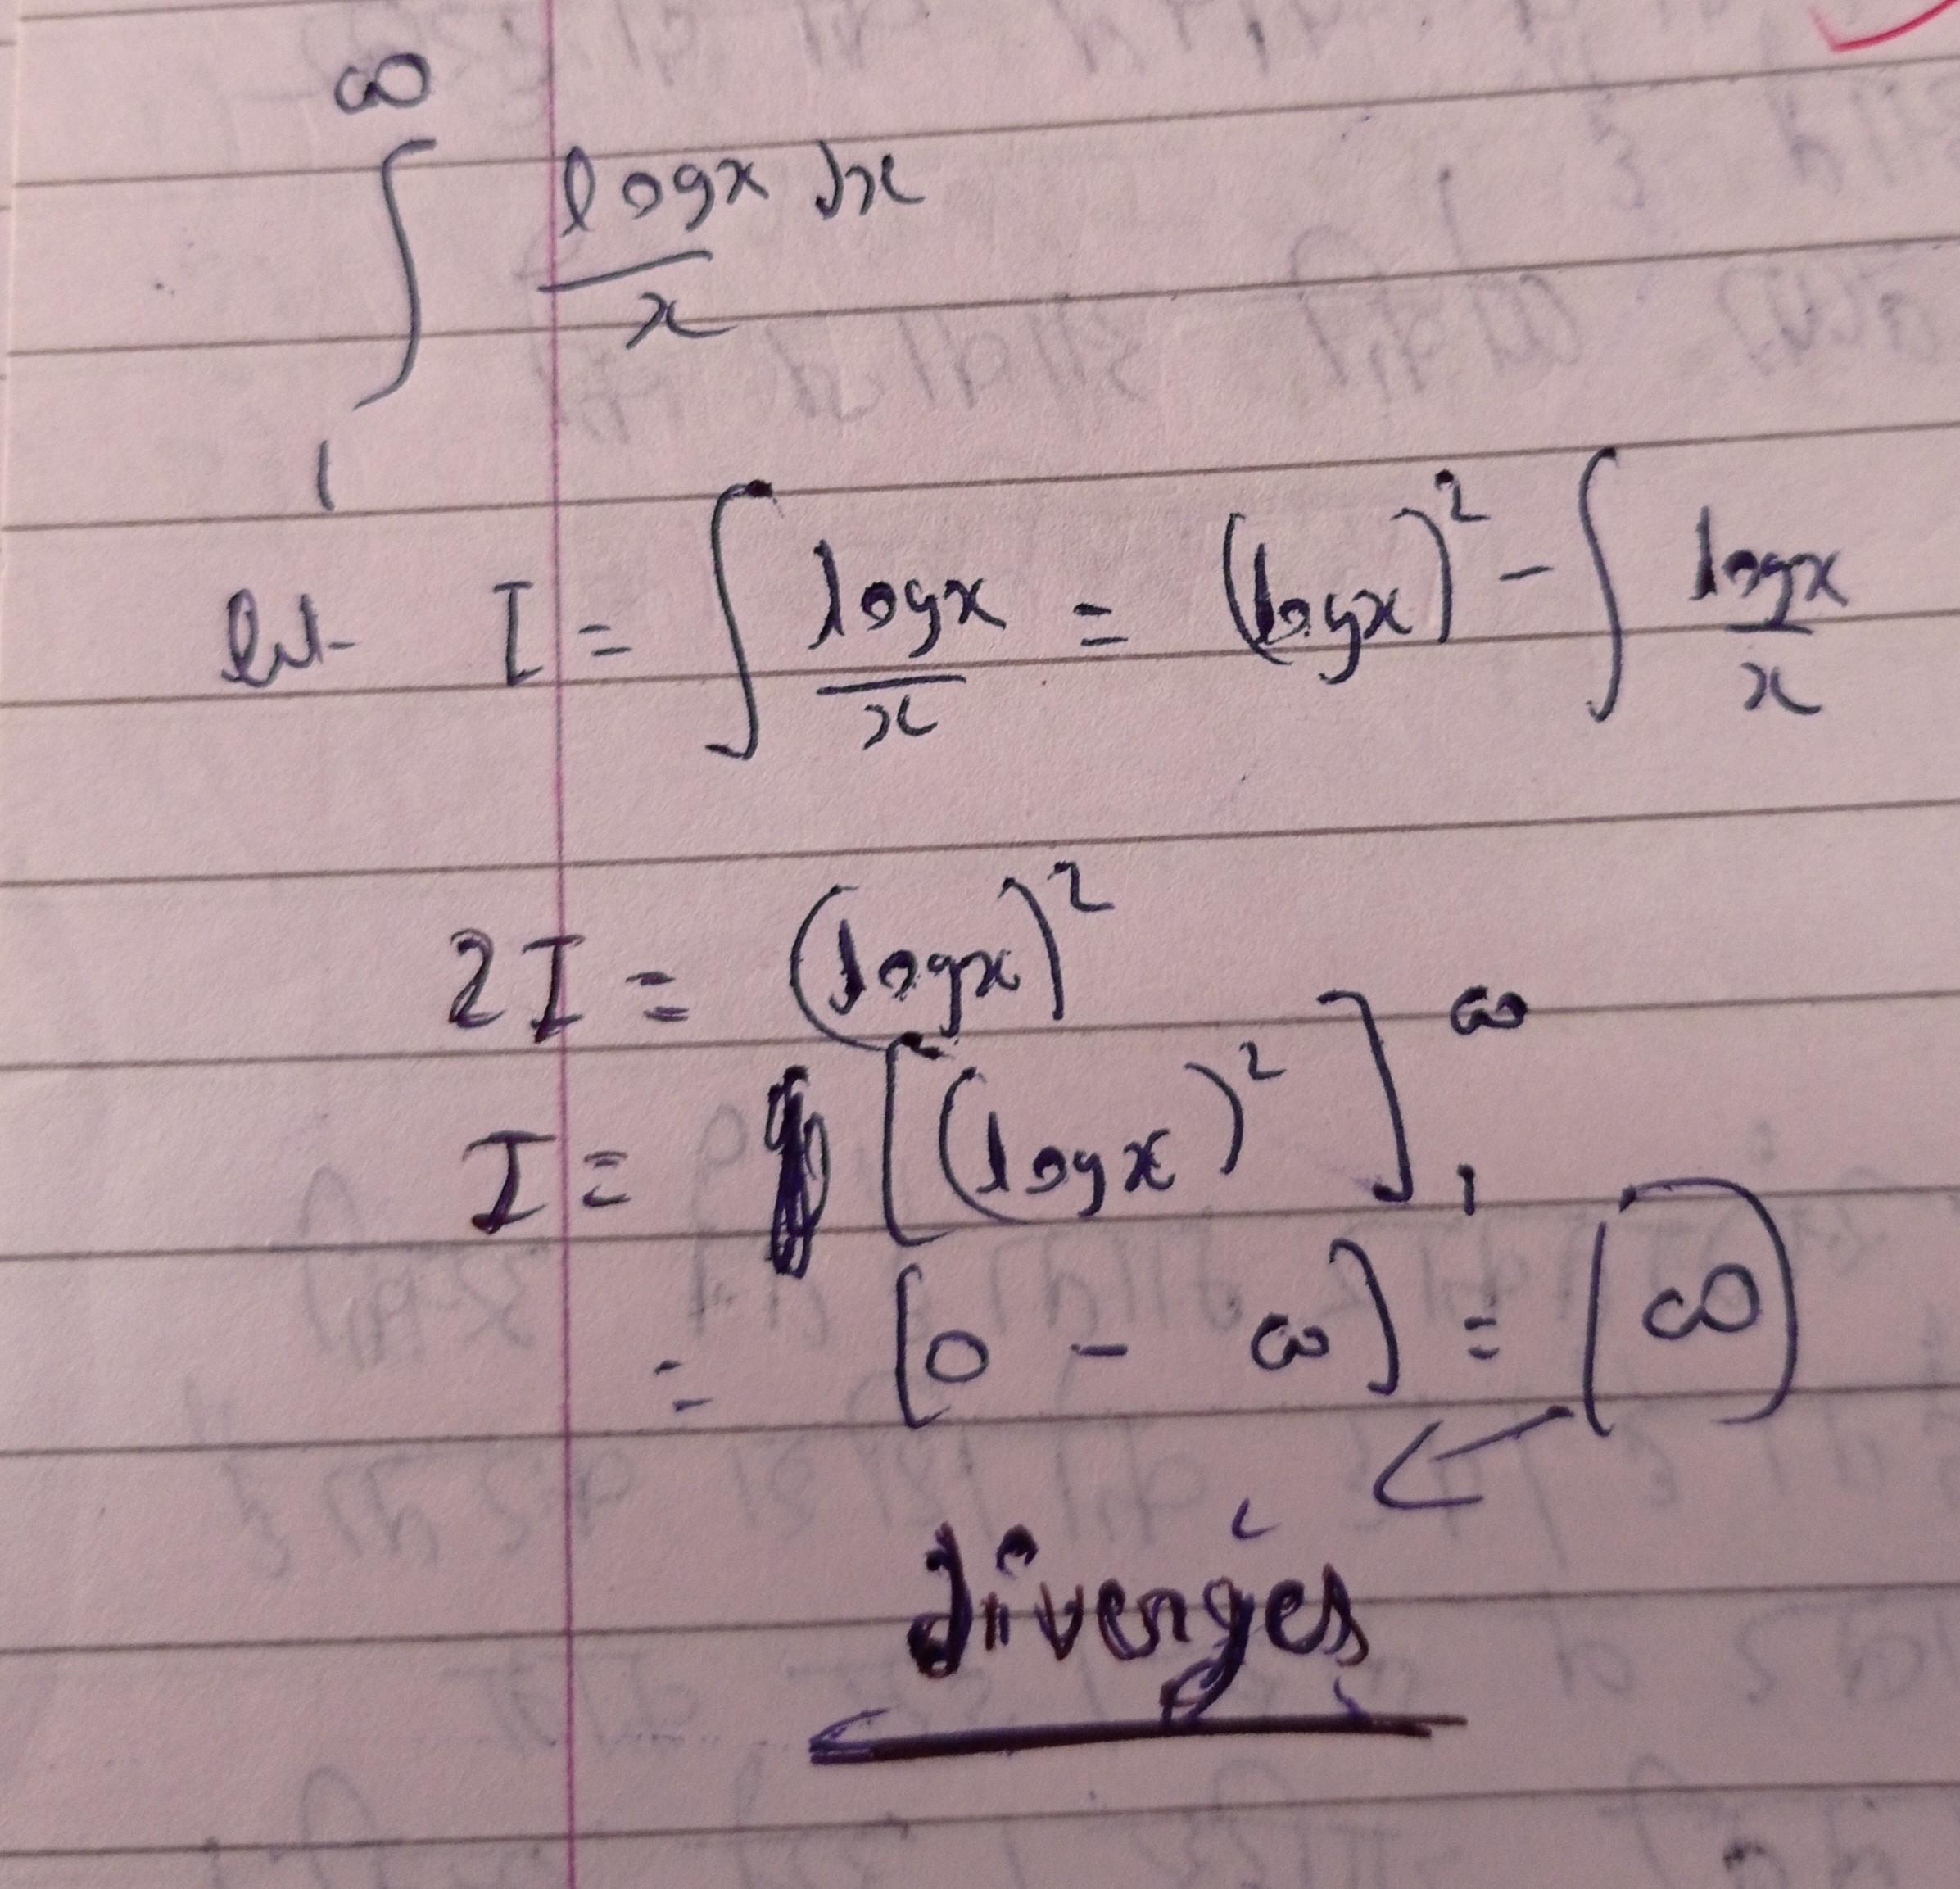 ∞
∫ logx dx
x
1
let I = ∫ logx/x = (logx)² - ∫ logx/x
2I = (logx)²
I = [(logx)²]₁^∞
= [0 - ∞] = ∞
diverges